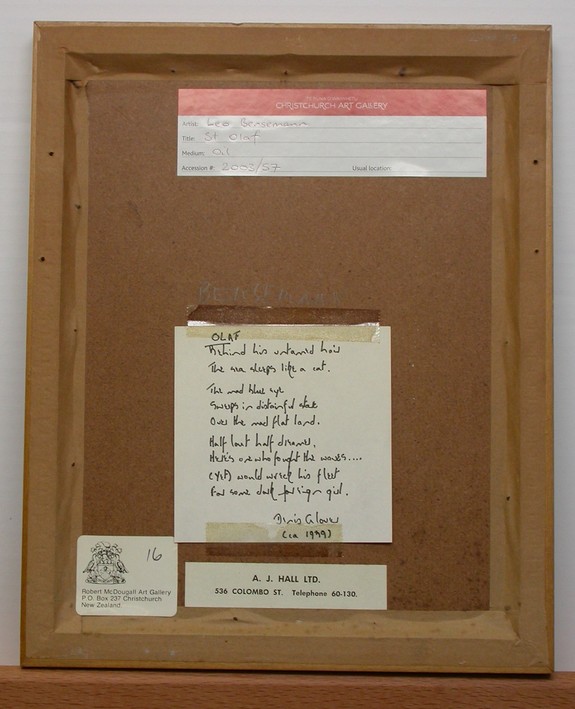 CHRISTCHURCH ART GALLERY
Artist: Leo Bensemann
Title: St Olaf
Medium: Oil
Accession #: 2003/57 Usual location:
BENSEMANN
OLAF
Behind his untamed hair
The sea sleeps like a cat.
The mad blue eye
Sweeps in distainful state
Over the mad flat land.
Half lout half dreamer,
Here's one who fought the waves....
(Yet) would wreck his fleet
For some dark foreign girl.
Denis Glover
(ca 1999)
16
Robert McDougall Art Gallery
P.O. Box 237 Christchurch
New Zealand.
A. J. HALL LTD.
536 COLOMBO ST. Telephone 60-130.